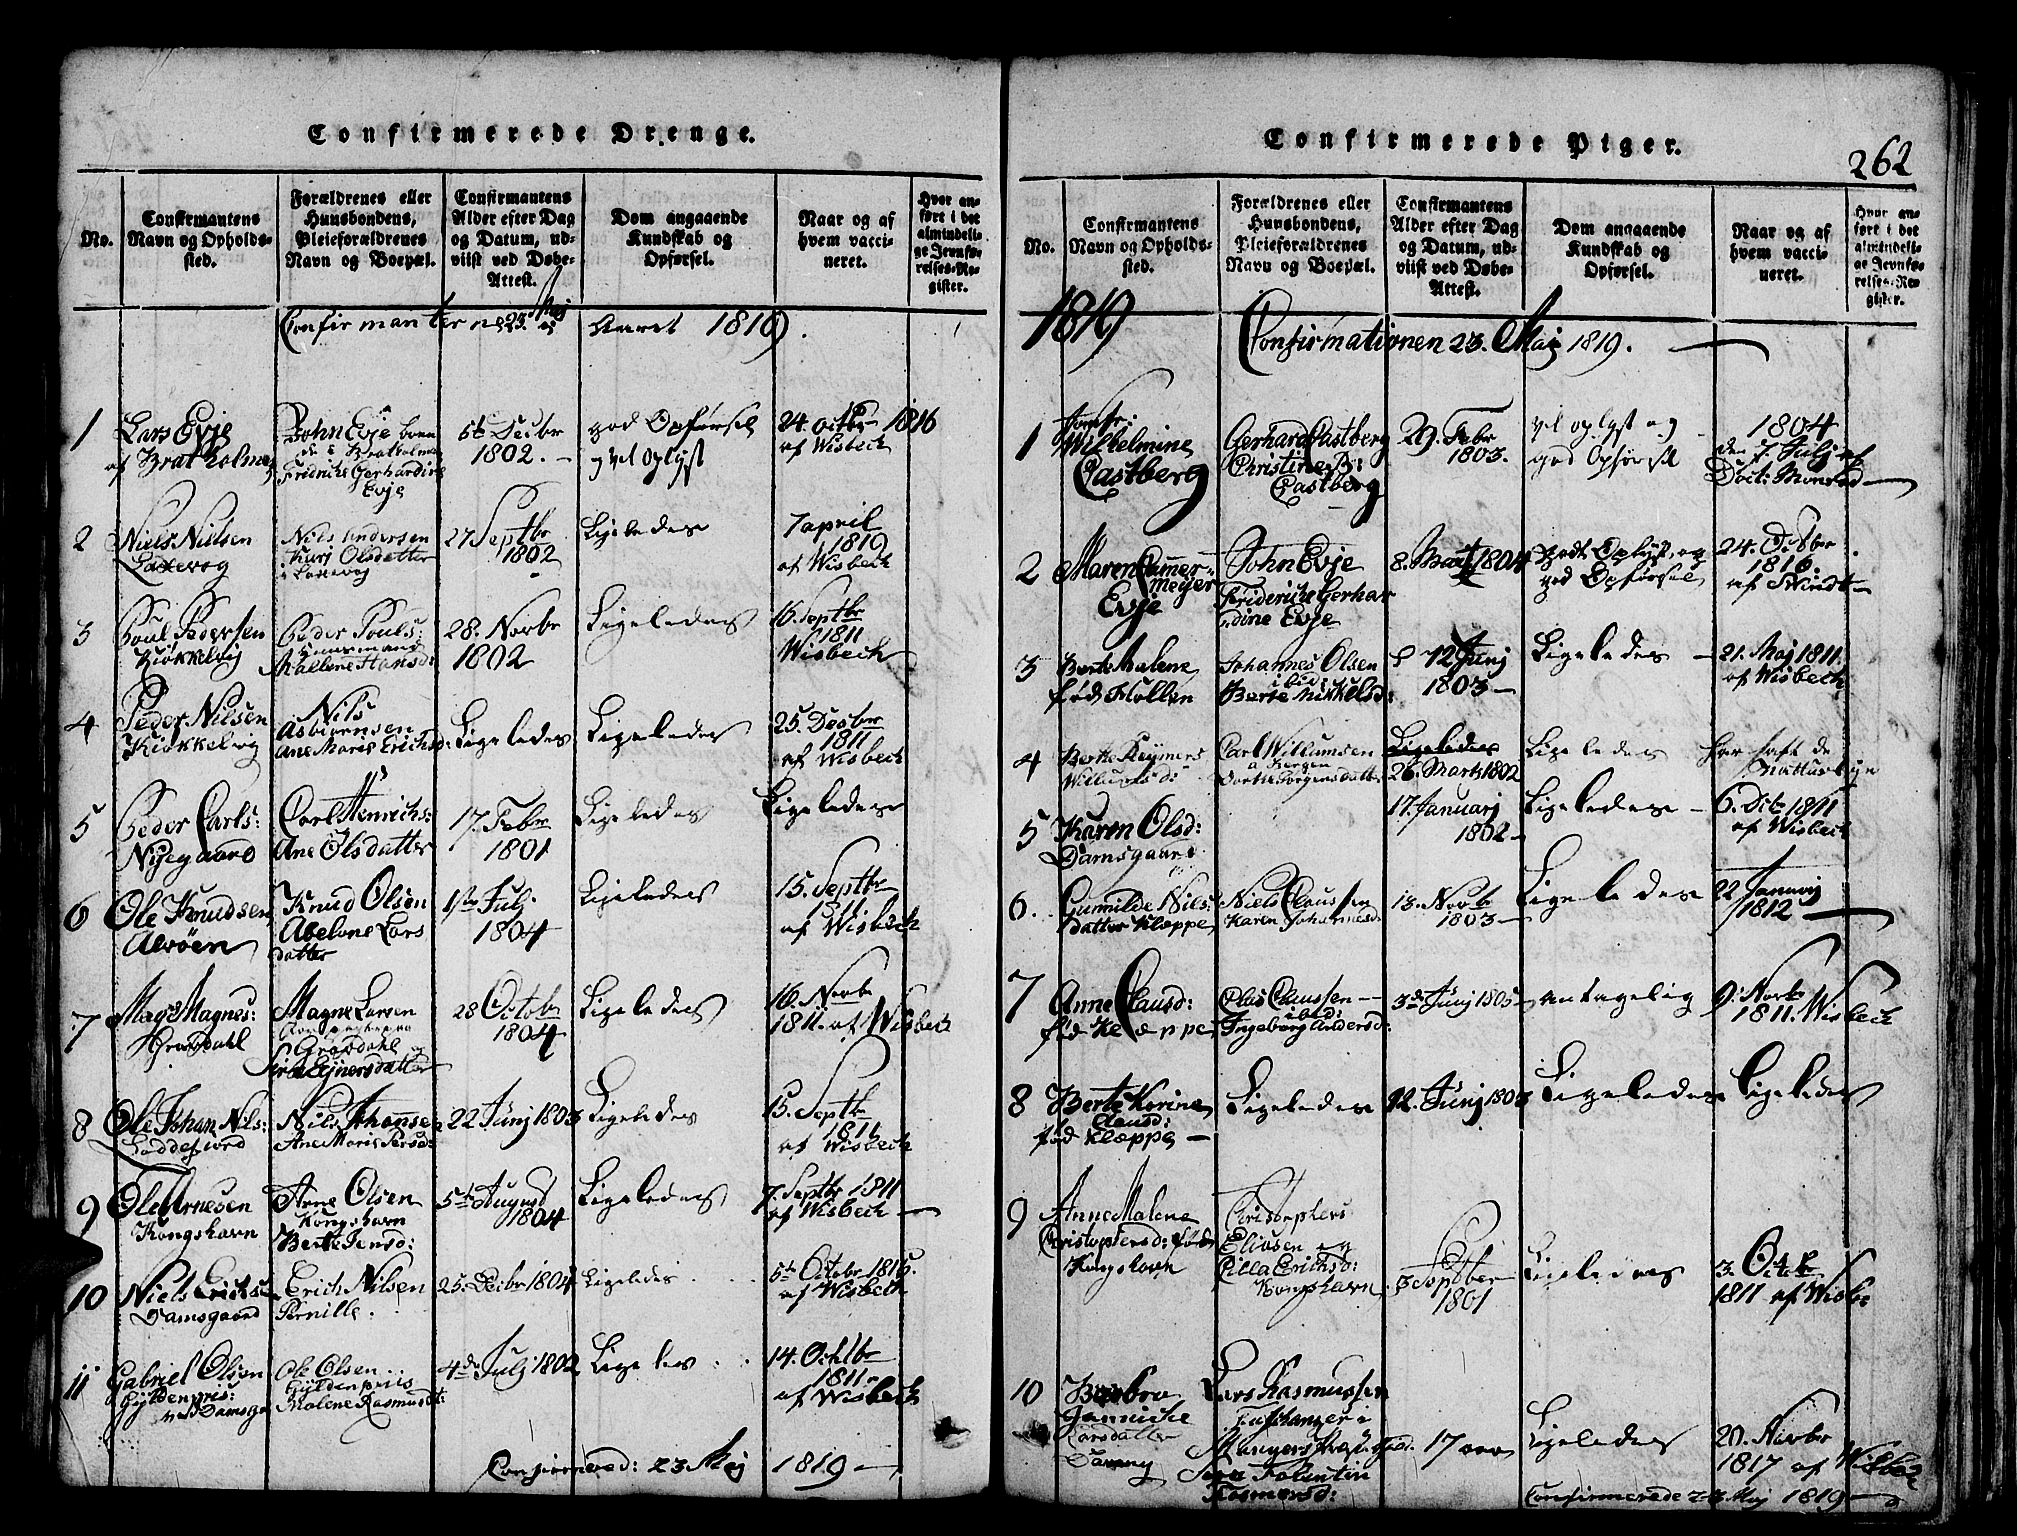 Confirmerede Drenge.
No.
Confirmantens
Navn og Opholds-
sted.
Forældrenes eller
Huusbondens,
Pleieforældrenes
Navn og Boepæl.
Confirmantens
Alder efter Dag
og Datum, ud-
viist ved Døbe-
Attest.
Dom angaaende
Kundskab og
Opførsel.
Naar og af
hvem vacci-
neret.
Hvor an-
ført i det
almindeli-
ge Jevnfø-
relses-Re-
gister.
Confirmanterne 23. Maj Aaret 1819.
1
Lars Evje
af Bratholmen
John Evje boen
de i Bratholmen
Fridriche Gerhardine
Evje
5te Decbr
1802.
god Opførsel
og vel Oplyst
24 octbr 1816
af Wisbech
2
Niels Nielsen
Laxevog
Nils Andersen
Kari Olsdatter
i Laxevog
27 Septbr
1802
Ligeledes
7 april
1819
af Wisbech
3
Poul Pedersen
Kiøkkelvig
Peder Pouls:
Huusmand
Mallene Hansd:
28. Novbr
1802
Ligeledes
16. Septbr
1811
Wisbech
4
Peder Nilsen
Kiøkkelvig
Nils
Asbiørnsen
Ane Marie Erichsd:
Ligeledes
Ligeledes
25. Decbr
1811
af Wisbech
5
Peder Carls:
Nygaard
Carl Henrichs:
Ane Olsdatter
17. Febr
1801
Ligeledes
Ligeledes
6
Ole Knudsen
Alvøen
Knud Olsen
Abelone Lars
datter
1ste Julj
1804
Ligeledes
15. Septbr
1811
af Wisbech
7
Mag: Magnes:
Græsdahl
Magne Larsen
Græsdahl og
Siri Ejnersdatter
28 Octobr
1804
Ligeledes
16. Novbr
1811. af Wisbech
8
Ole Johan Nils:
Loddefiord
Nils Johansen
Ane Marie Persd:
22 Junj 1803
Ligeledes
15. Septbr
1811
af Wisbech
9
Ole Arnesen
Kongshavn
Arne Olsen
Kongshavn
Berthe Jensd:
5te August
1804
Ligeledes
7. Septbr 1811
af Wisbech
10
Niels Erichsen
Damsgaard
Erich Nilsen
Pernille.
25. Decbr 1804
Ligeledes
5te Octobr 1815.
af Wisbech
11
Gabriel Olsen
Gyldenpris:
ved Damsga
Ole Olsen
Gyldenpriis
Malene Rasmusdt:
4de Julj 1802
Ligeles
14. Octbr
1811
af Wisbech
Confirmered: 23 Maj 1819
Confirmerede Piger.
262
No.
Confirmantens
Navn og Opholds-
sted.
Forældrenes eller
Huusbondens,
Pleieforældrenes
Navn og Boepæl.
Confirmantens
Alder efter Dag
og Datum, ud-
viist ved Døbe-
Attest.
Dom angaaende
Kundskab og
Opførsel.
Naar og af
hvem vacci-
neret.
Hvor an-
ført i det
almindeli-
ge Jevnfø-
relses-Re-
gister.
1819
Confirmationen 23. Maj 1819.
1
Jomfr:
Wilhelmine
Castberg
Gerhard Castberg
Christine
Castberg
29. Febr
1803.
vel oplyst og
god Opførsel
1804
den 7. Julj af
Doct: Monrad
2
Maren Camer-
mejer
Evje
John Evje
Friderich Gerhar
dine Evje
8. Mart 1804
godt Oplyst, og
god Opførsel
24. Octbr
1816
af Smindt
3
Berte Malene
fød Hollen
Johannes Olsen
ibid:
Berte Mikkelsd:
12 Junj
1803
Ligeledes
21. Maj 1811.
af Wisbech
4
Berthe Reymers
Willumsd:
Carl Willumsen
Dorthe Jørgensdatter
Ligeledes
26. Marts 1802
Ligeledes
Har haft de
5
Karen Olsd:
Damsgaard
17. Januarj
1802
Ligeledes
6. Octb 1811
af Wisbech
6.
Gunnilde Nils:
datter Kleppe
Niels Claussen
Karen Johannesd:
13. Novb
1803
Ligeledes
22 Januarj
1812
7
Anne Clausd:
fød Kleppe
Claus Claussen
ibid:
Ingeborg Andersd:
3de Junj 1805
antagelig
9. Novbr
1811. Wisbech
8
Berte Korine
Clausd:
fød Kleppe
Ligeledes
12. Junj 1803
Ligeledes
Ligeledes
9
Anne Malene
Christophersd: fød
Kongshavn
Christophers
Eliasen og
Cilla Erichsd:
Kongshavn
3 Septber
1801
Ligeledes
3. Octbr
1811 af Wisbe
10
Barbra
Jannicke
Larsdatter
Lars Rasmussen
Mangers Præstegield.
Rasmusd:
17 aar
Ligeledes
20. Novbr
1817 af Wisbech
Confirmerede 23 Maj 1819